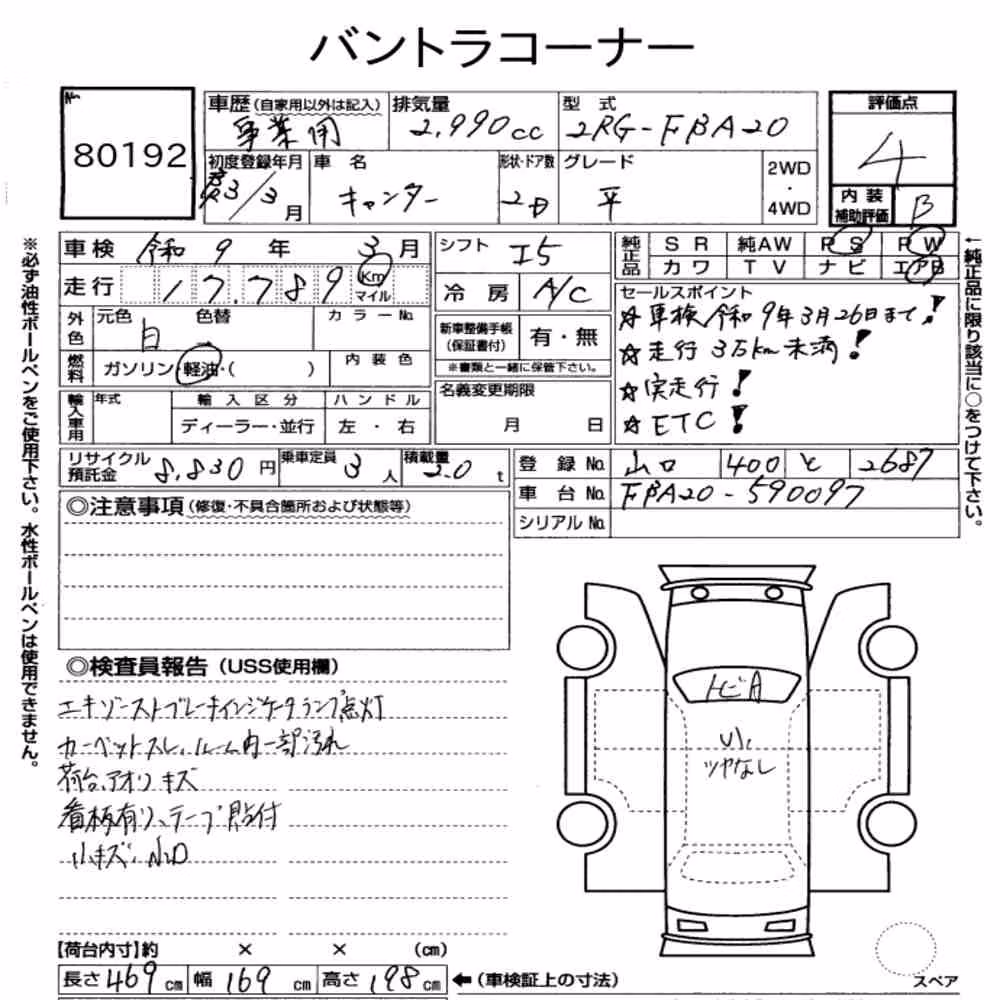 バントラコーナー
No.
80192
車歴(自家用以外は記入)
事業用
排気量
2,990cc
型式
2RG-FBA20
評価点
4
初度登録年月
R3/3月
車名
キャンター
形状・ドア数
2D
グレード
平
2WD
・
4WD
内装
補助評価
B
車検 令和 9年 3月
シフト I5
純正品
SR 純AW PS PW
カワ TV ナビ エアB
走行 17,789 Km
マイル
冷房 A/C
外色
元色 白 色替
カラーNo.
新車整備手帳
(保証書付)
有・無
※書類と一緒に保管下さい。
セールスポイント
☆車検令和9年3月26日まで!
☆走行3万km未満!
☆実走行!
☆ETC!
燃料
ガソリン・軽油・( )
内装色
輸入車用
年式
輸入区分
ディーラー・並行
ハンドル
左・右
名義変更期限
月 日
リサイクル
預託金
8,830円
乗車定員 3人
積載量 2.0t
登録No. 山口 400 と 2687
車台No. FBA20-590097
シリアルNo.
◎注意事項(修復・不具合箇所および状態等)
◎検査員報告(USS使用欄)
エキゾーストブレーキインジケータランプ点灯
カーペットスレ、ルーム内一部汚れ
荷台、アオリキズ
看板有り、テープ貼付
小キズ、
トビA
ツヤなし
【荷台内寸】約 × × (cm)
長さ469cm 幅169cm 高さ198cm ←(車検証上の寸法)
スペア
※必ず油性ボールペンをご使用下さい。水性ボールペンは使用できません。
←純正品に限り該当に○をつけて下さい。